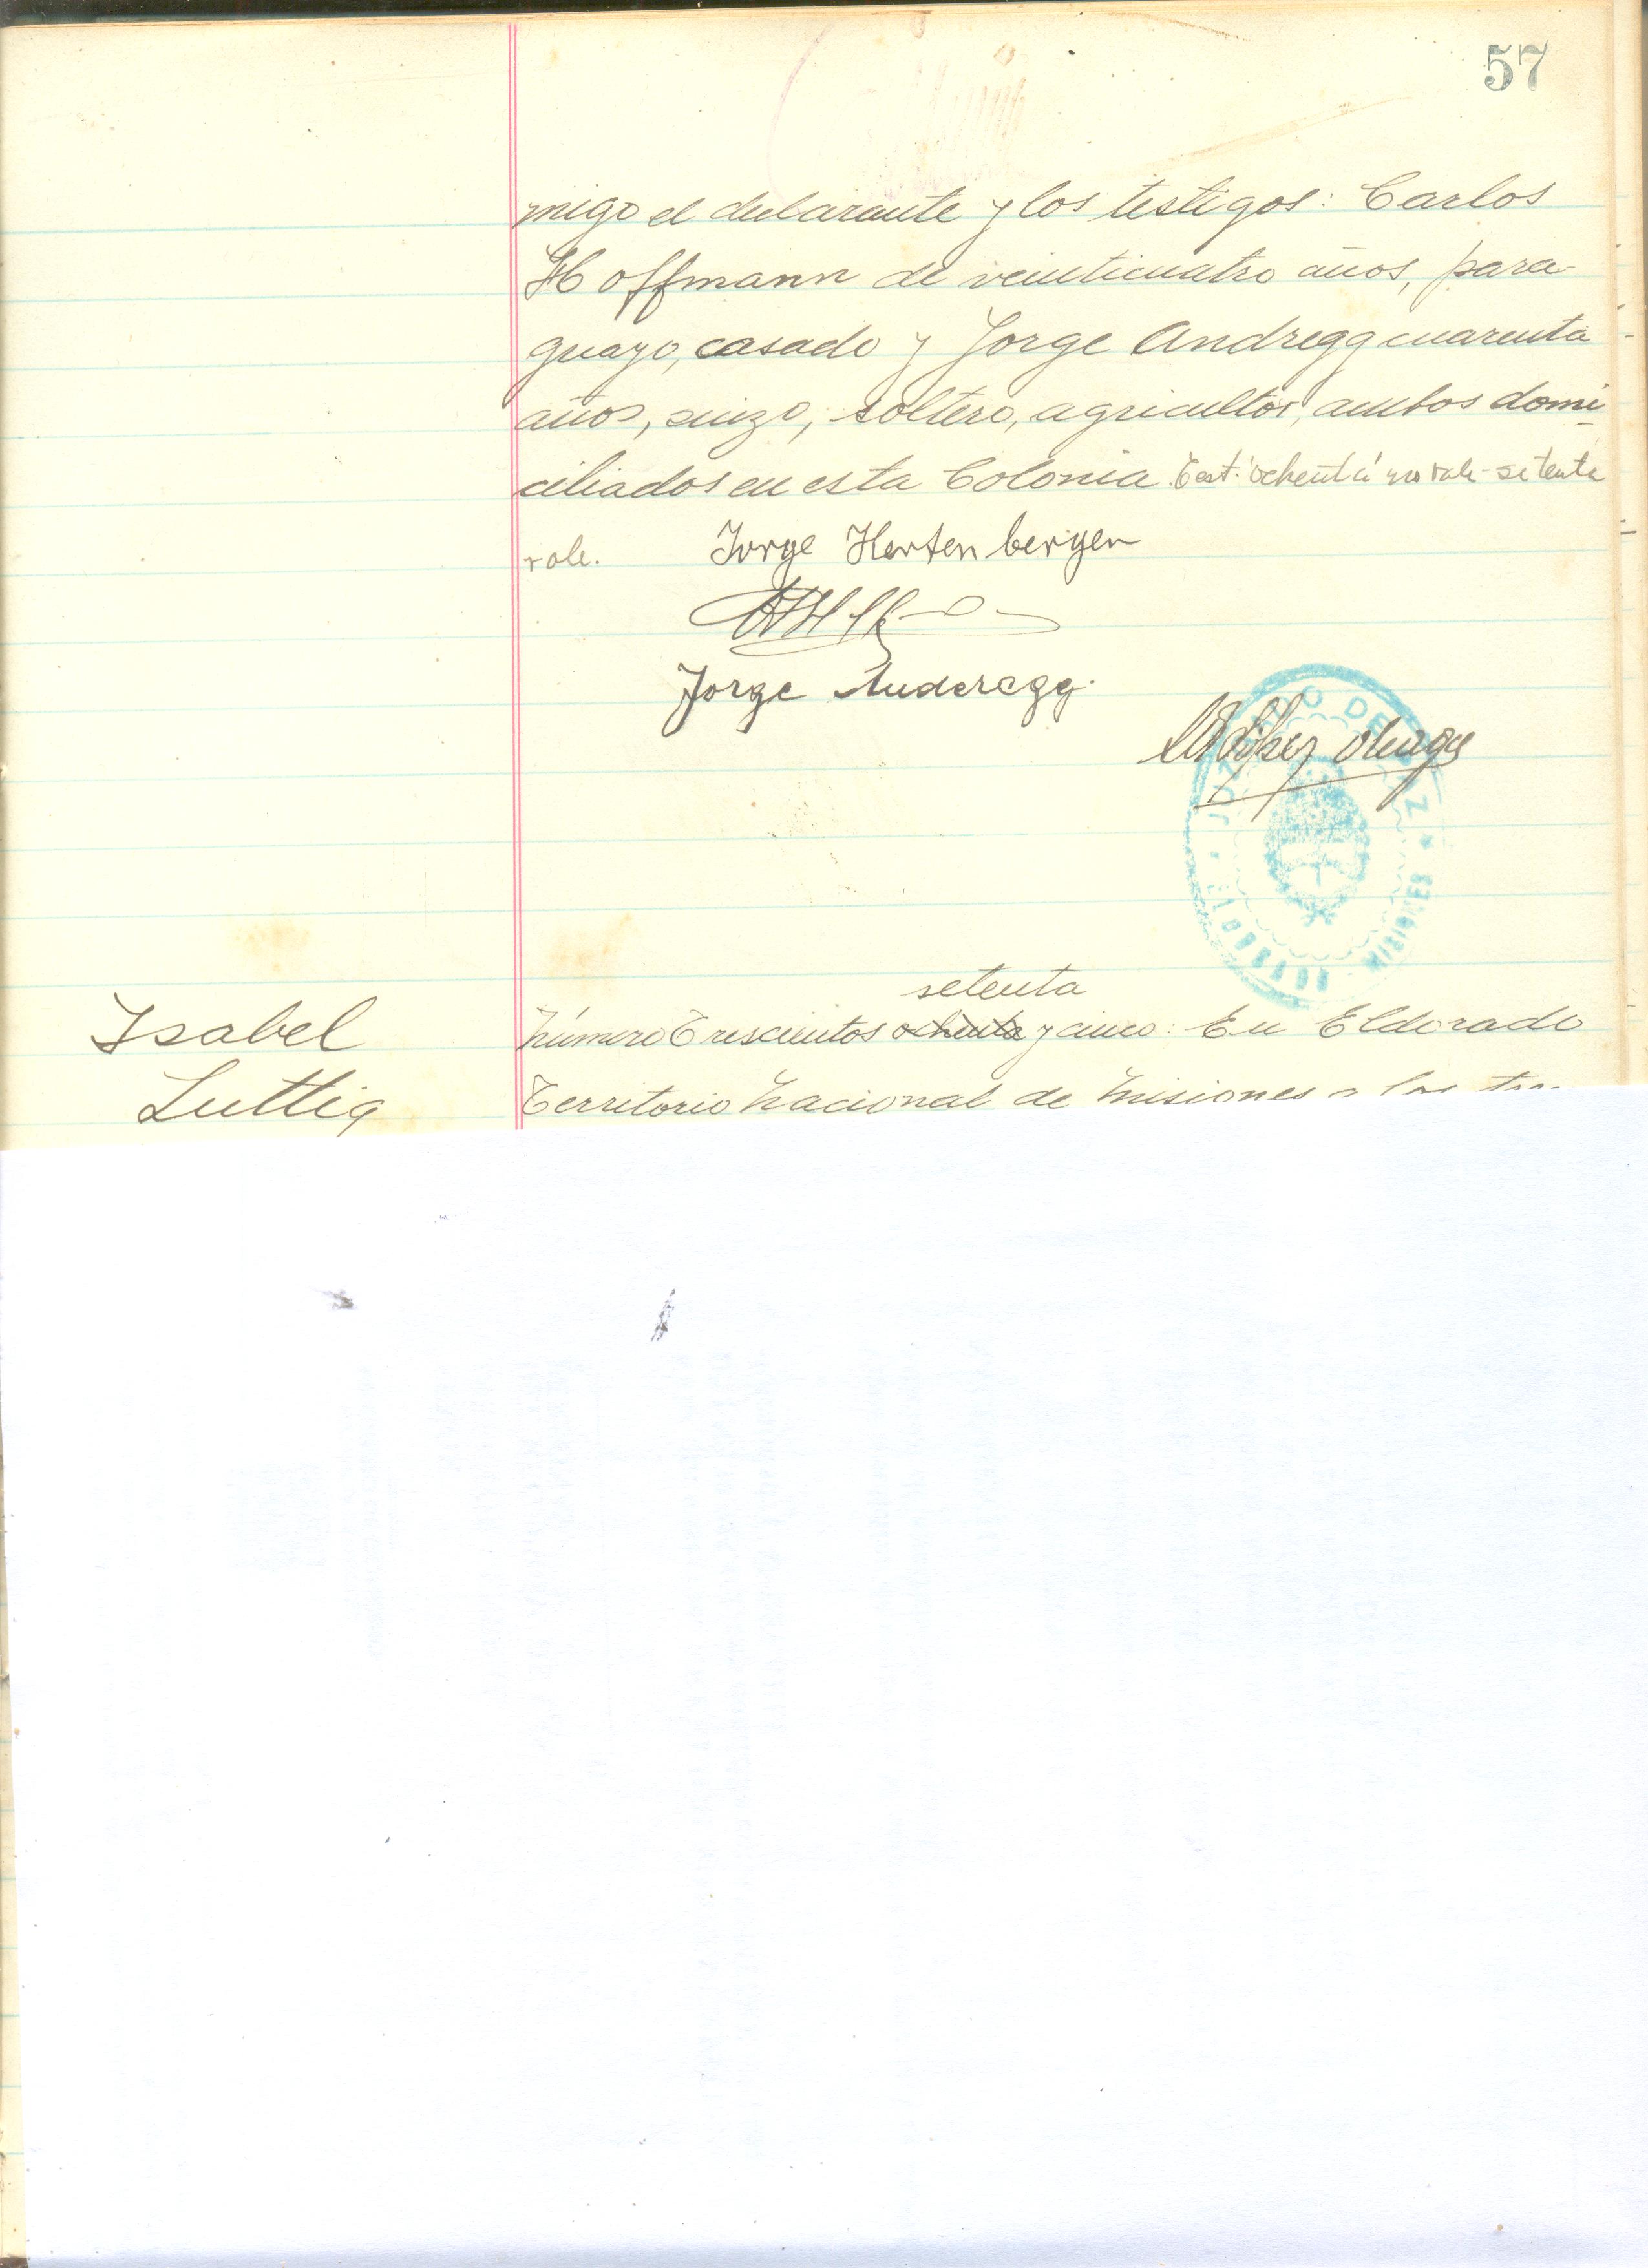 57
migo el declarante y los testigos: Carlos
Hoffmann de veinticuatro años, para-
guayo, casado y Jorge Andregg cuarenta
años, suizo, soltero, agricultor, ambos domi-
ciliados en esta Colonia. Test: "ochenta" no vale - setenta
vale.
Jorge Hertenberger
Jorge Anderegg.
JUZGADO DE PAZ
ELDORADO MISIONES
setenta
Isabel
Número Trescientos ochenta y cinco: En Eldorado
Luttig
Territorio Nacional de Misiones a los